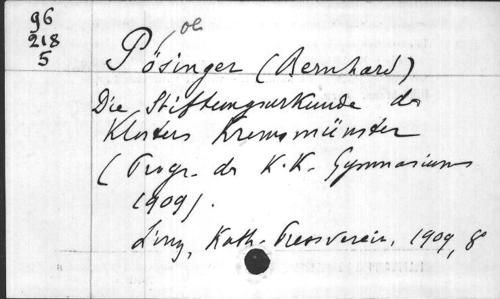 96
218
5
oe
Pösinger (Bernhard)
Die Stiftungsurkunde des
Klosters Kremsmünster
(Progr. des K.K. Gymnasiums
1909).
Linz, Kath. Pressverein, 1909, 8°